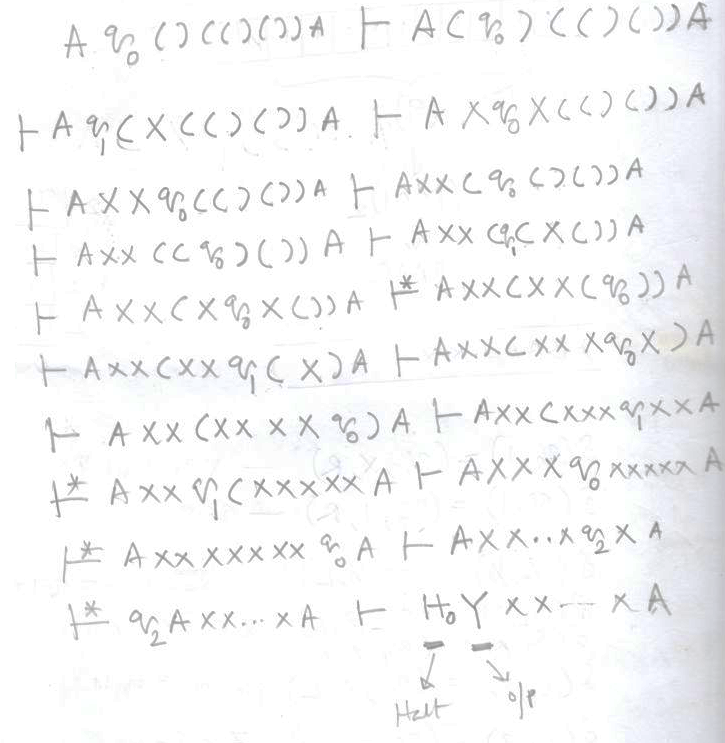 A q₀ ()(()())A ⊢ A(q₀)(()())A
⊢ A q₁(X(()())A ⊢ A X q₀ X(()())A
⊢ A X X q₀(()())A ⊢ AXX(q₀()())A
⊢ AXX((q₀)())A ⊢ AXX(q₁(X())A
⊢ AXX(Xq₀X())A ⊢* AXX(XX(q₀))A
⊢ AXX(XXq₁(X)A ⊢ AXX(XXXq₀X)A
⊢ AXX(XXXXq₀)A ⊢ AXX(XXXq₁XXA
⊢* AXXq₁(XXXXXA ⊢ AXXXq₀XXXXXA
⊢* AXXXXXXXq₀A ⊢ AXX..Xq₂XA
⊢* q₂AXX...XA ⊢ H₀YXX---XA
Halt o/p